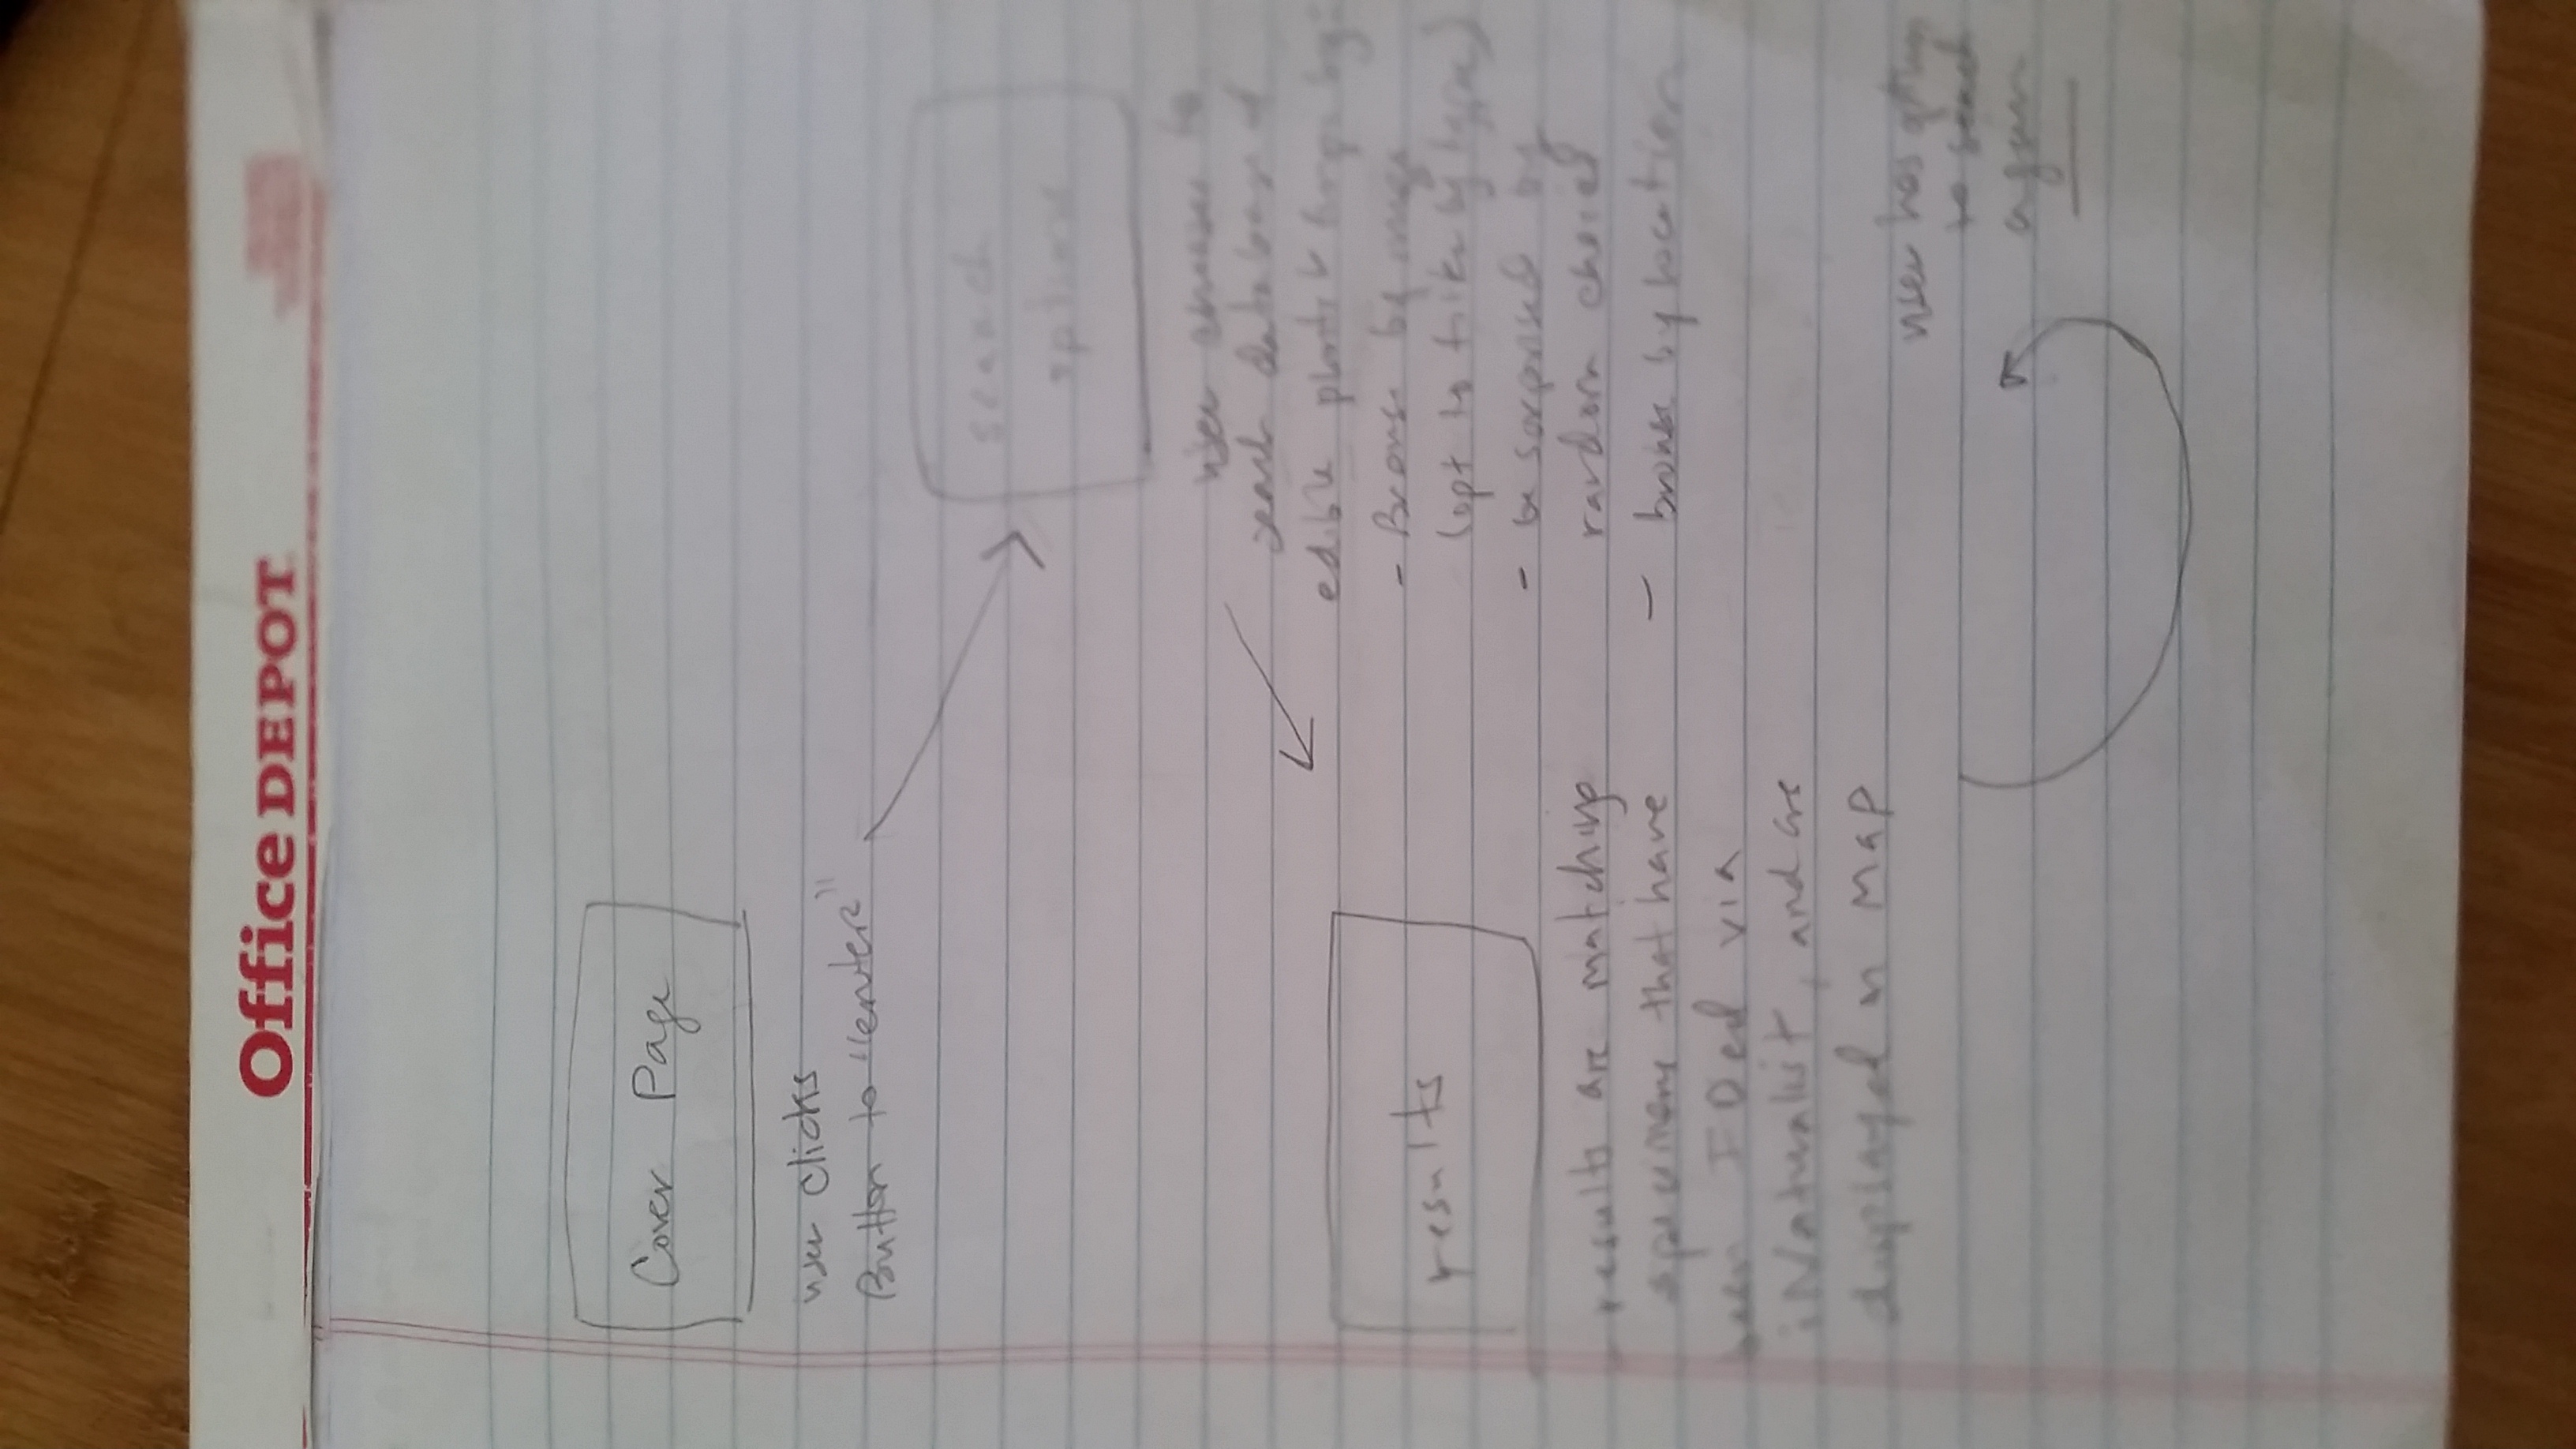 Office DEPOT
Cover Page
user clicks
Button to "enter"
search
options
user chooses to
search database of
edible plants & fungi by:
- Browse by image
(opt to filter by type)
- be surprised by
random choice
- browse by location
results
results are matching
specimens that have
been IDed via
iNaturalist, and are
displayed on Map
user has option
to search
again